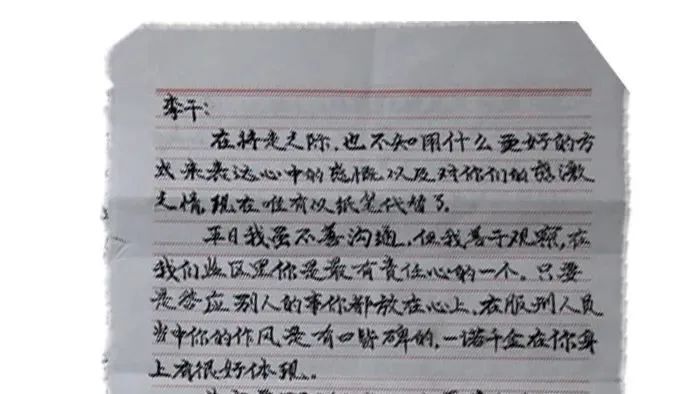 李干：
在将走之际，也不知用什么更好的方
式来表达心中的感慨以及对你们的感激
之情，现在唯有以纸笔代替了。
平日我虽不善沟通，但我善于观察，在
我们监区里你是最有责任心的一个。只要
是答应别人的事你都放在心上，在服刑人员
当中你的作风是有口皆碑的，一诺千金在你身
上有很好体现。